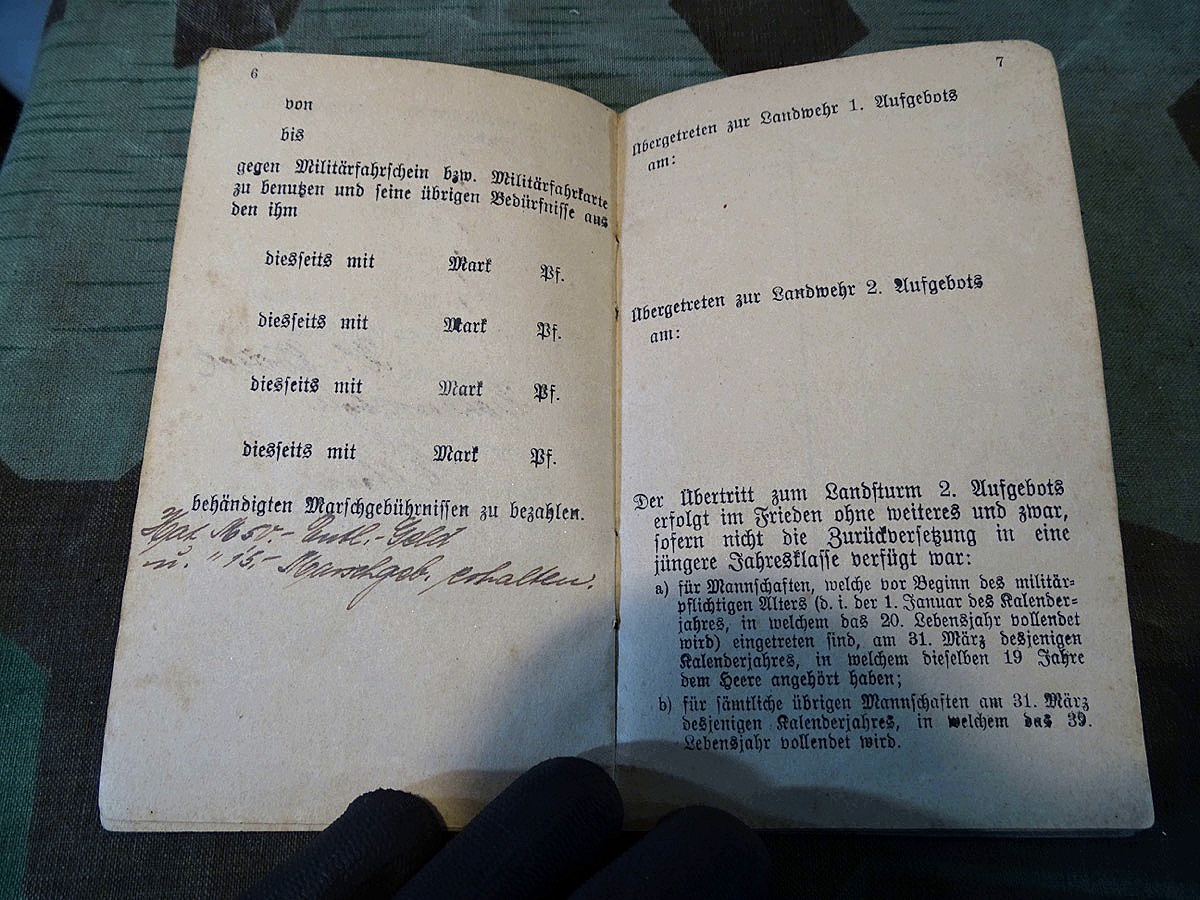 6
von
bis
gegen Militärfahrschein bzw. Militärfahrkarte
zu benutzen und seine übrigen Bedürfnisse aus
den ihm
diesseits mit Mark Pf.
diesseits mit Mark Pf.
diesseits mit Mark Pf.
diesseits mit Mark Pf.
behändigten Marschgebührnissen zu bezahlen.
Hat M 50.- Entl.-Geld
u. " 15,- Marschgeb. erhalten.
7
Übergetreten zur Landwehr 1. Aufgebots
am:
Übergetreten zur Landwehr 2. Aufgebots
am:
Der Übertritt zum Landsturm 2. Aufgebots
erfolgt im Frieden ohne weiteres und zwar,
sofern nicht die Zurückversetzung in eine
jüngere Jahresklasse verfügt war:
a) für Mannschaften, welche vor Beginn des militär-
pflichtigen Alters (d. i. der 1. Januar des Kalender-
jahres, in welchem das 20. Lebensjahr vollendet
wird) eingetreten sind, am 31. März desjenigen
Kalenderjahres, in welchem dieselben 19 Jahre
dem Heere angehört haben;
b) für sämtliche übrigen Mannschaften am 31. März
desjenigen Kalenderjahres, in welchem das 39.
Lebensjahr vollendet wird.